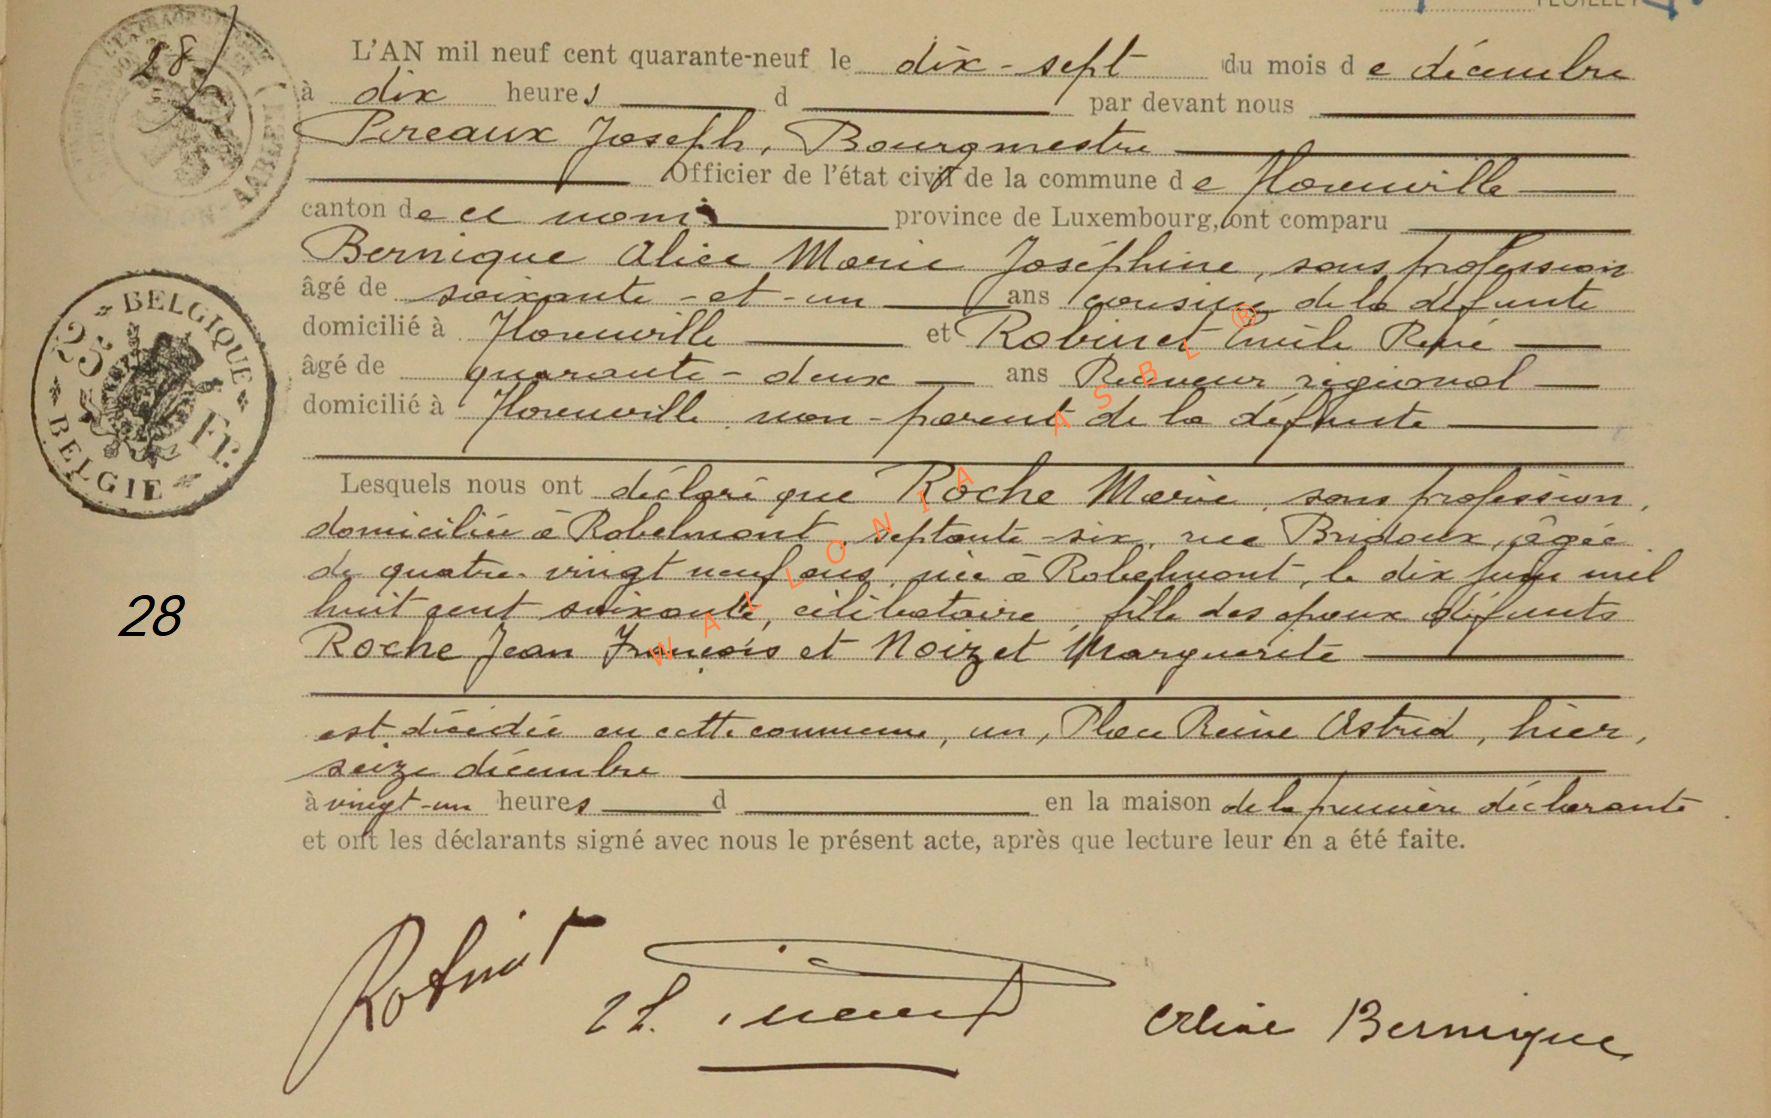 FEUILLET
28
L'AN mil neuf cent quarante-neuf le dix-sept du mois de décembre
à dix heures d par devant nous
Pireaux Joseph, Bourgmestre
Officier de l'état civil de la commune de Florenville
canton de ce nom province de Luxembourg, ont comparu
Bernique Alice Marie Joséphine, sans profession
âgé de soixante-et-un ans cousine de la défunte
domicilié à Florenville et Robinet Emile René
âgé de quarante-deux ans Receveur régional
domicilié à Florenville non-parent de la défunte
Lesquels nous ont déclaré que Roche Marie, sans profession,
domiciliée à Robelmont, septante-six, rue Bridoux, âgée
de quatre-vingt neuf ans, née à Robelmont, le dix juin mil
huit cent soixante, célibataire, fille des époux défunts
Roche Jean François et Noizet Marguerite
est décédée en cette commune, un, Place Reine Astrid, hier,
seize décembre
à vingt-un heures d en la maison de la première déclarante
et ont les déclarants signé avec nous le présent acte, après que lecture leur en a été faite.
BELGIQUE
Fr.
BELGIE
28
WALLONIA ASBL ®
Robinet
Alice Bernique